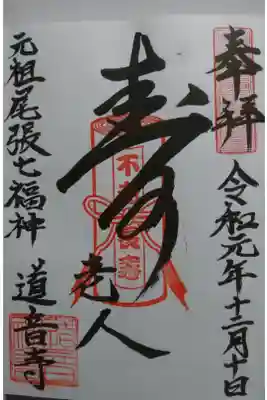 奉拝
令和元年十二月十日
寿老人
元祖尾張七福神
道音寺